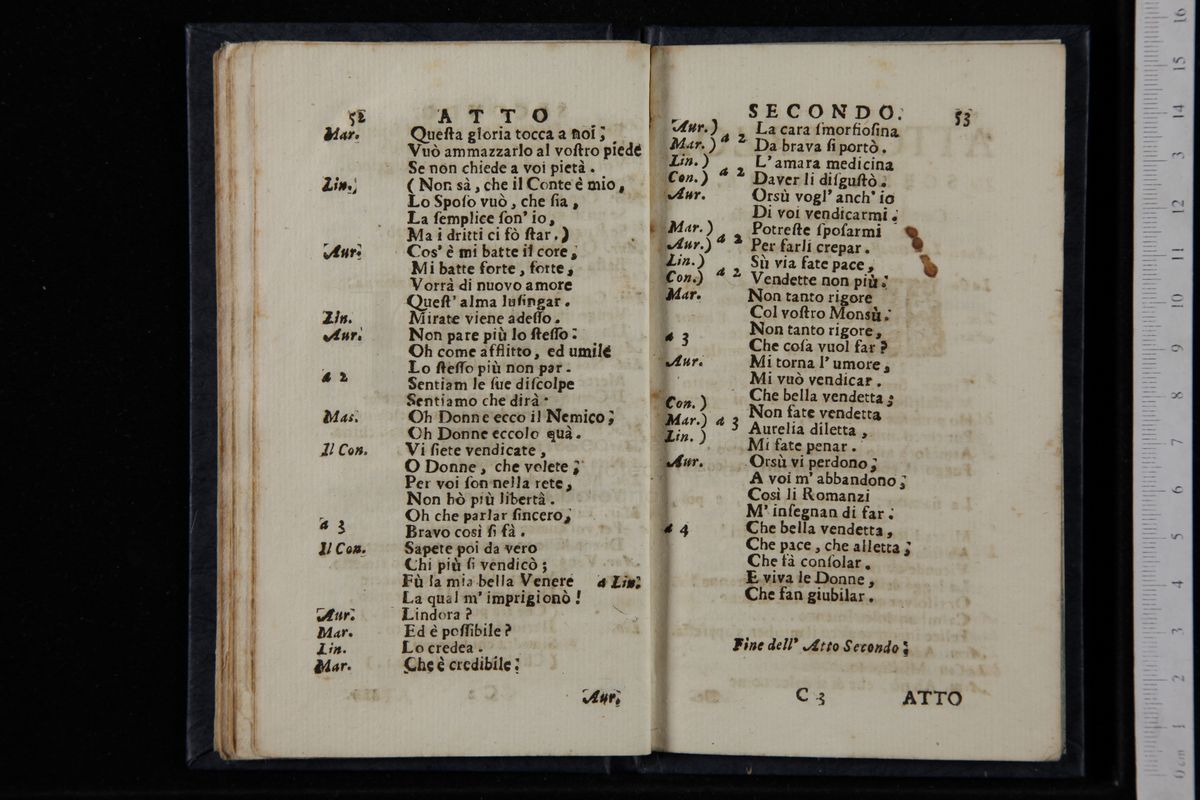 52 ATTO
Mar. Queſta gloria tocca a noi;
Vuò ammazzarlo al voſtro piedé
Se non chiede a voi pietà.
Lin. (Non sà, che il Conte è mio,
Lo Spoſo vuò, che ſia,
La ſemplice ſon' io,
Ma i dritti ci fò ſtar.)
Aur. Cos' è mi batte il core;
Mi batte forte, forte,
Vorrà di nuovo amore
Queſt' alma luſingar.
Lin. Mirate viene adeſſo.
Aur. Non pare più lo ſteſſo:
Oh come afflitto, ed umilé
Lo ſteſſo più non par.
a 2 Sentiam le ſue diſcolpe
Sentiamo che dirà.
Mas. Oh Donne ecco il Nemico;
Oh Donne eccolo quà.
Il Con. Vi ſiete vendicate,
O Donne, che volete;
Per voi ſon nella rete,
Non hò più libertà.
Oh che parlar ſincero,
a 3 Bravo così ſi fà.
Il Con. Sapete poi da vero
Chi più ſi vendicò;
Fù la mia bella Venere a Lin.
La qual m' imprigionò!
Aur. Lindora?
Mar. Ed è poſſibile?
Lin. Lo credea.
Mar. Che è credibile;
Aur.
SECONDO. 53
Aur.) La cara ſmorfioſina
Mar.) a 2 Da brava ſi portò.
Lin.) L' amara medicina
Con.) a 2 Daver li diſguſtò.
Aur. Orsù vogl' anch' io
Di voi vendicarmi.
Mar.) Potreſte ſpoſarmi
Aur.) a 2 Per farli crepar.
Lin.) Sù via fate pace,
Con.) a 2 Vendette non più:
Mar. Non tanto rigore
Col voſtro Monsù.
Non tanto rigore,
a 3 Che coſa vuol far?
Aur. Mi torna l' umore,
Mi vuò vendicar.
Che bella vendetta;
Con.) Non fate vendetta
Mar.) a 3 Aurelia diletta,
Lin.) Mi fate penar.
Aur. Orsù vi perdono;
A voi m' abbandono;
Così li Romanzi
M' inſegnan di far.
a 4 Che bella vendetta,
Che pace, che alletta;
Che fà conſolar.
E viva le Donne,
Che fan giubilar.
Fine dell' Atto Secondo;
C 3 ATTO
0 cm 1 2 3 4 5 6 7 8 9 10 11 12 13 14 15 16